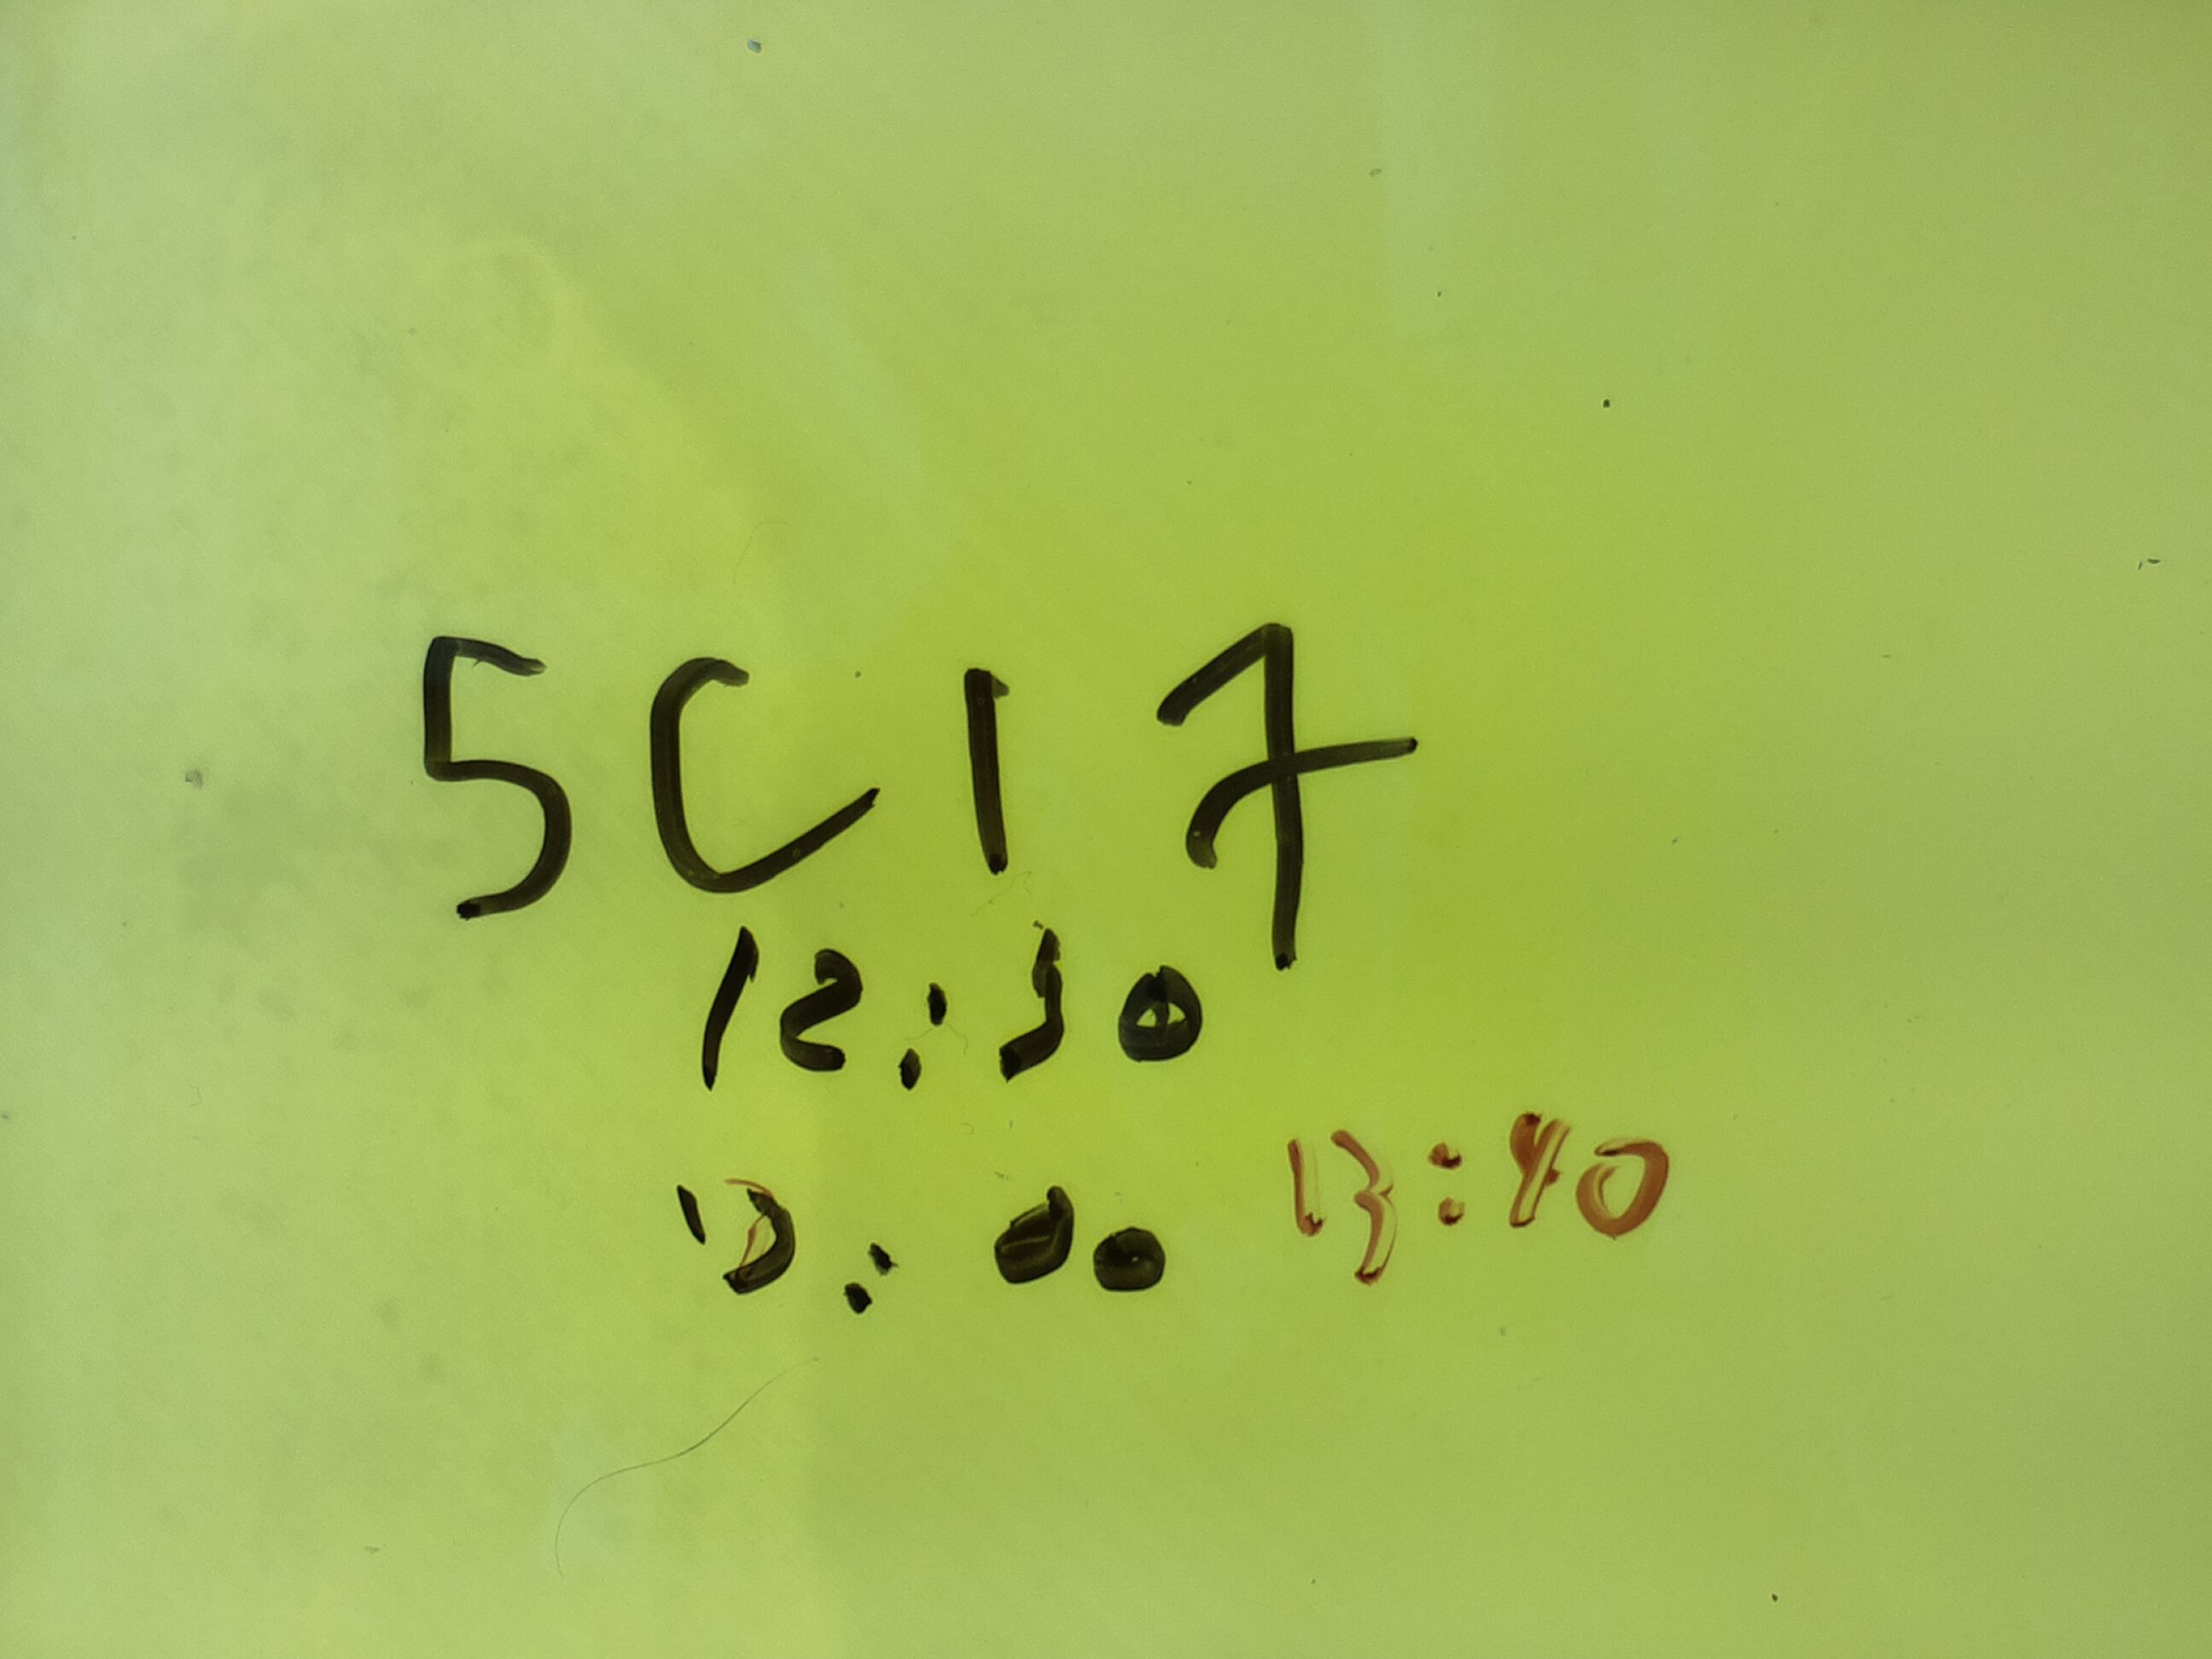 5C17
12:30
13:00 13:40